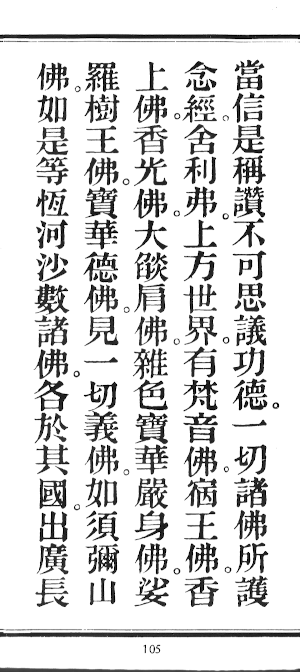 當信是稱讚不可思議功德。一切諸佛所護
念經。舍利弗。上方世界。有梵音佛。宿王佛。香
上佛。香光佛。大燄肩佛。雜色寶華嚴身佛。娑
羅樹王佛。寶華德佛。見一切義佛。如須彌山
佛。如是等恆河沙數諸佛。各於其國。出廣長
105